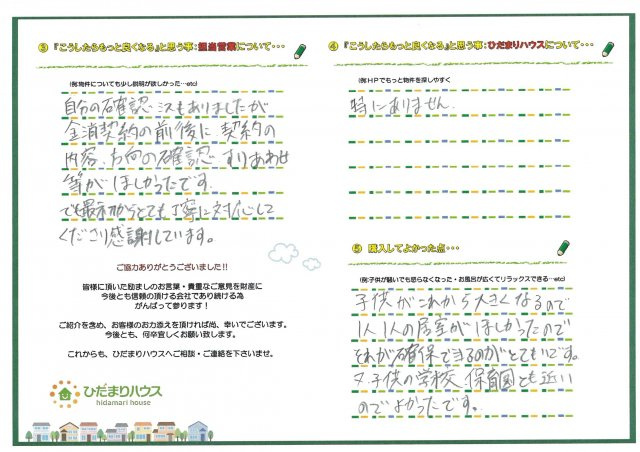 ③『こうしたらもっと良くなる』と思う事:担当営業について・・・
(例:物件についても少し説明が欲しかった…etc)
自分の確認ミスもありましたが
金消契約の前後に、契約の
内容、方向の確認、すりあわせ
等がほしかったです。
でも最初からとても丁寧に対応して
くださり感謝しています。
ご協力ありがとうございました!!
皆様に頂いた励ましのお言葉・貴重なご意見を財産に
今後とも信頼の頂ける会社であり続ける為
がんばって参ります!
ご紹介を含め、お客様のお力添えを頂ければ尚、幸いでございます。
今後とも、何卒宜しくお願い致します。
これからも、ひだまりハウスへご相談・ご連絡を下さいませ。
ひだまりハウス
hidamari house
④『こうしたらもっと良くなる』と思う事:ひだまりハウスについて・・・
(例:HPでもっと物件を探しやすく
特にありません。
⑤ 購入してよかった点・・・
(例:子供が騒いでも怒らなくなった・お風呂が広くてリラックスできる…etc)
子供がこれから大きくなるので
1人1人の居室がほしかったので
それが確保できるのがとてもいいです。
又子供の学校、保育園とも近い
のでよかったです。